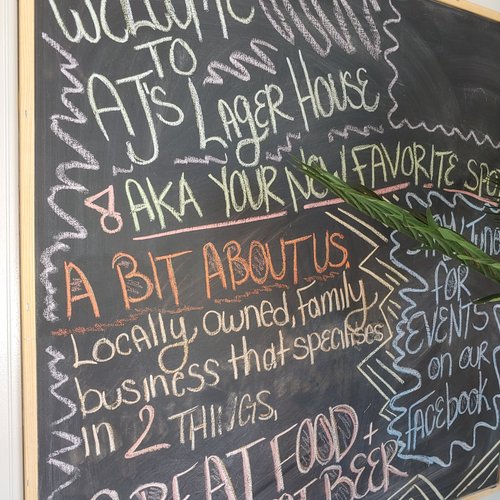 WELCOME
TO
AJ'S LAGER HOUSE
AKA YOUR NOW FAVORITE
A BIT ABOUT US.
Locally owned, family
business that specifises
in 2 THINGS.
GREAT FOOD +
BEER
STAY TUNED
FOR
EVENTS
ON OUR
FACEBOOK